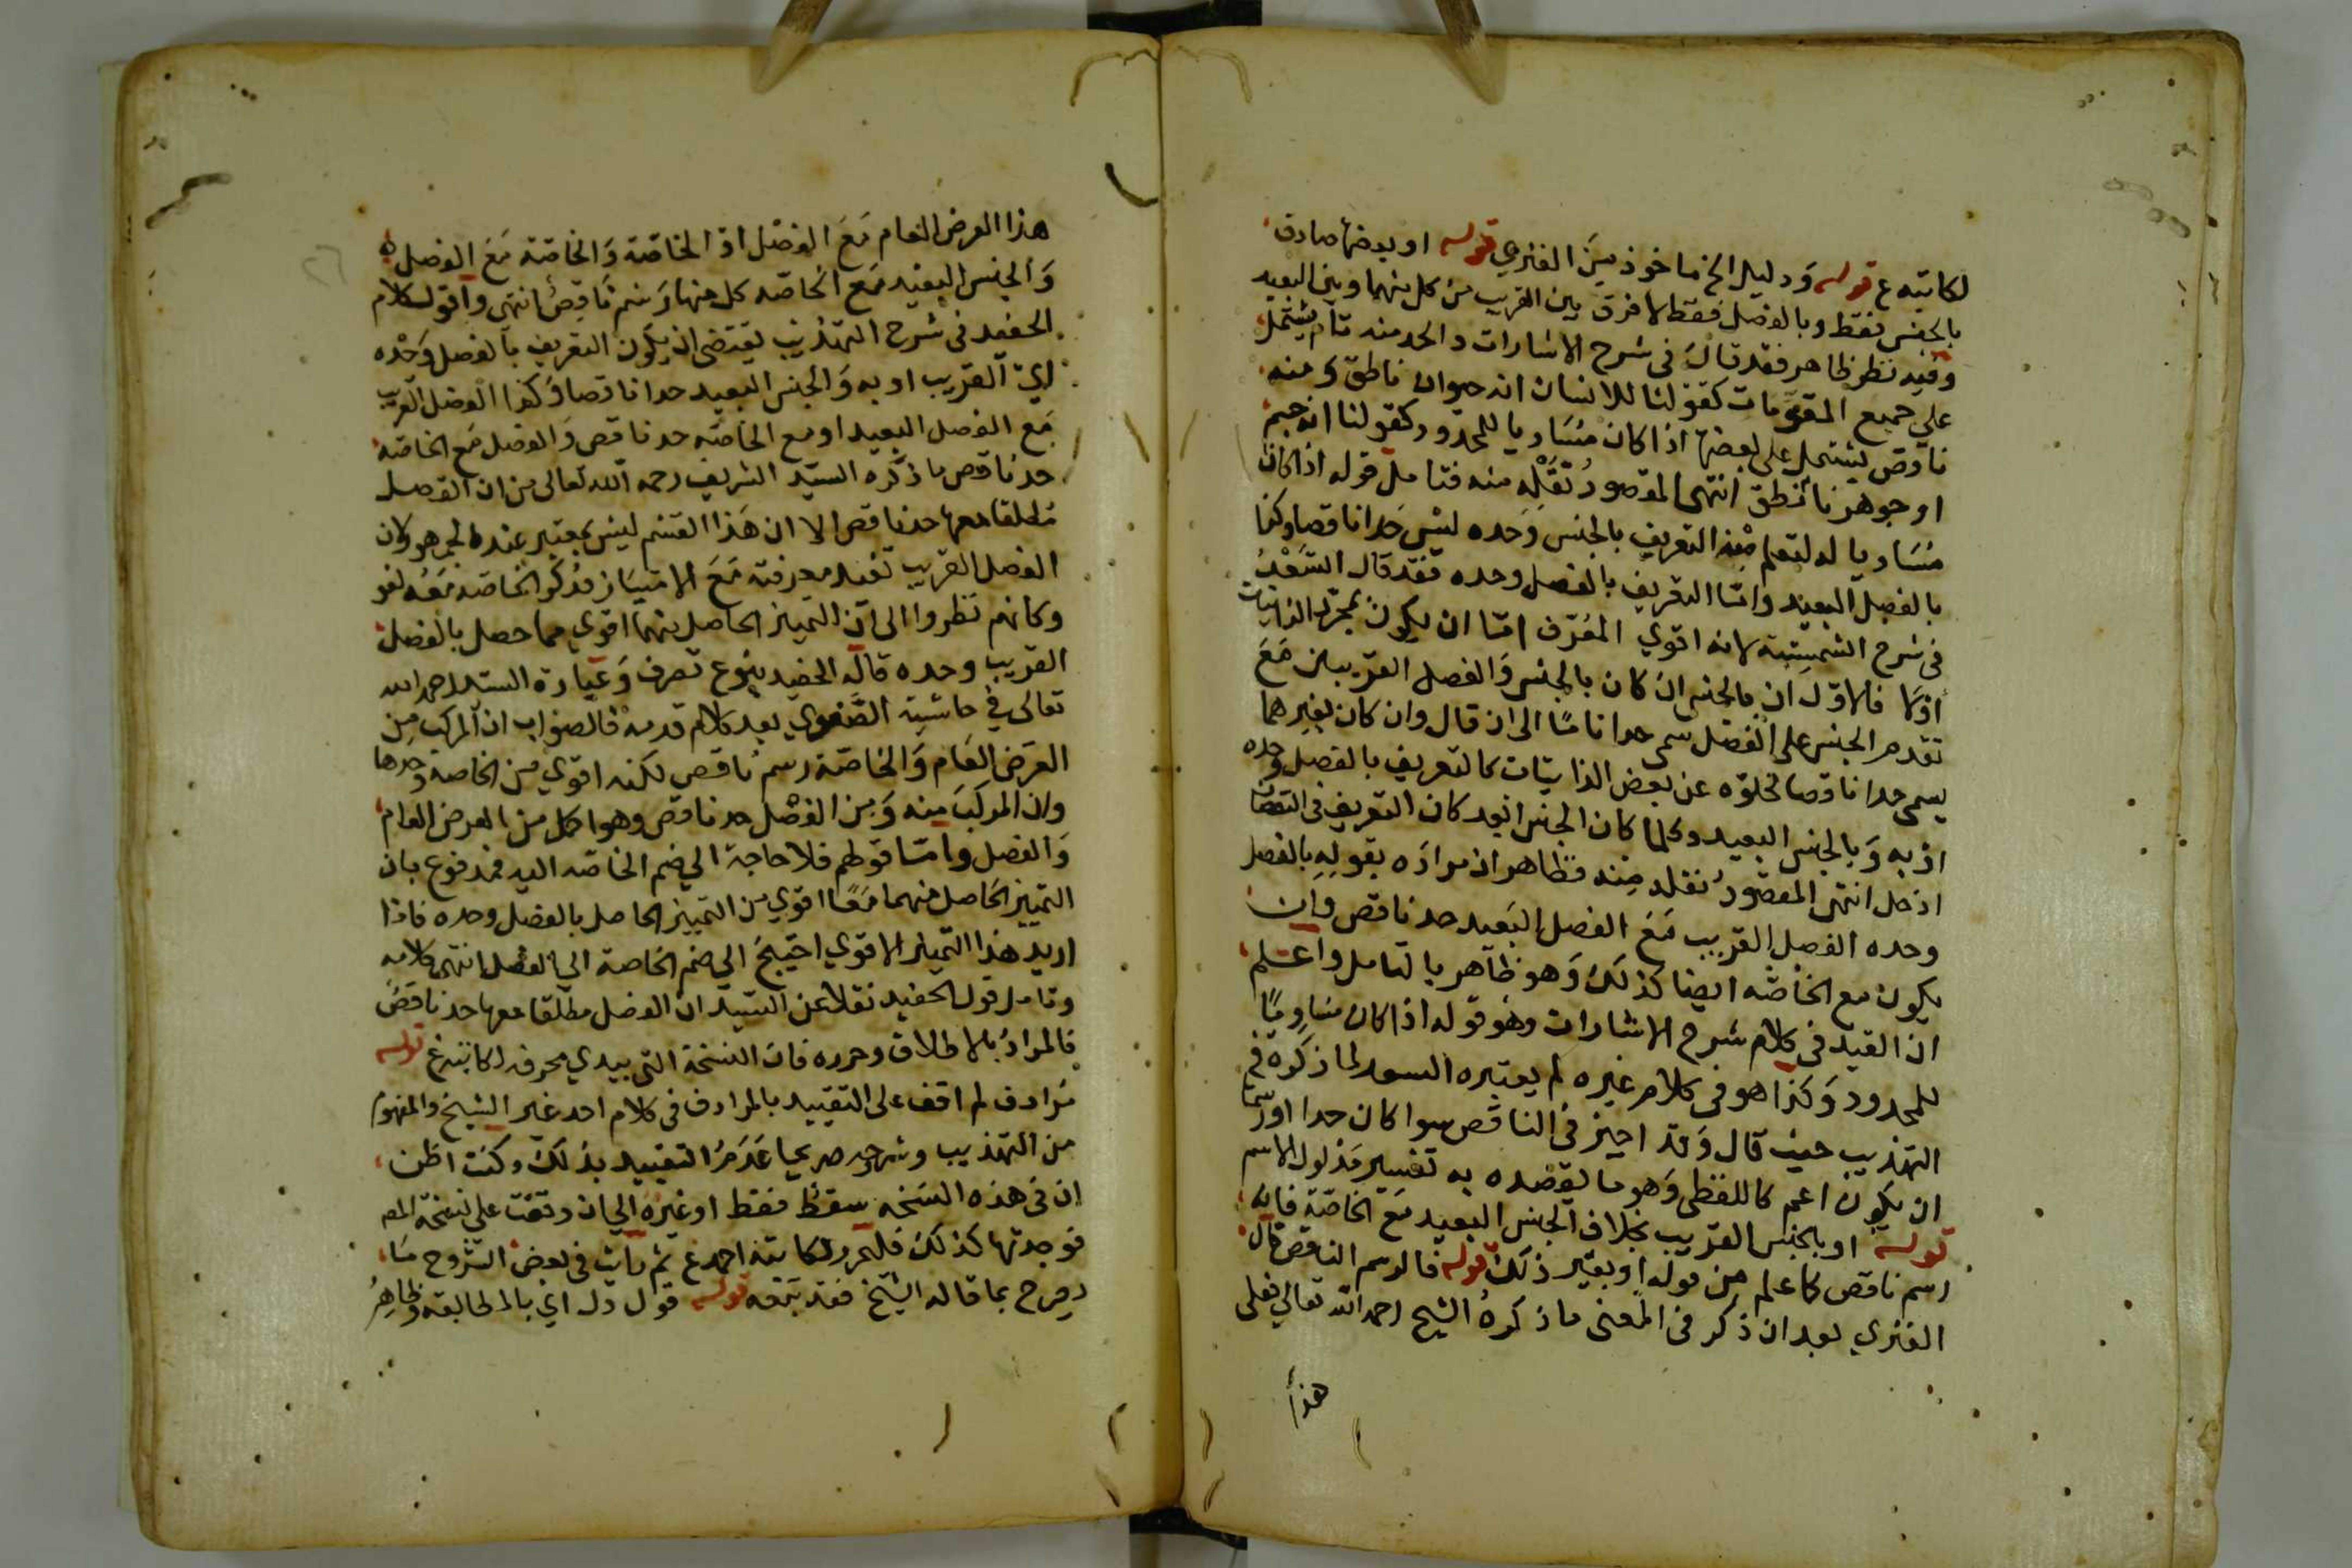 لكاتبه ع قوله ودليله الخ ماخوذ من الفنري قوله او بعضها صادق
بالجنس فقط وبالفصل فقط لا فرق بين القريب من كل منهما وبين البعيد
وفيه نظر ظاهر فقد قال في شرح الاشارات والحد منه تام يشتمل
على جميع المقومات كقولنا للانسان انه حيوان ناطق ومنه
ناقص يشتمل على بعضها اذا كان مساويا للمحدود كقولنا انه جسم
او جوهر ناطق انتهى المقصود نقله منه فتامل قوله اذا كان
مساويا له لتعلم منه التعريف بالجنس وحده ليس حدا ناقصا وكذا
بالفصل البعيد واما التعريف بالفصل وحده فقد قال السعد
في شرح الشمسية لانه اقوى المعرف اما ان يكون بمجرد الذاتيات
اولا فالاول ان بالجنس ان كان بالجنس والفصل القريبين مع
تقدم الجنس على الفصل سمى حدا تاما الى ان قال وان كان بغيرهما
يسمى حدا ناقصا لخلوه عن بعض الذاتيات كالتعريف بالفصل وحده
او به وبالجنس البعيد وكلما كان الجنس ابعد كان التعريف في النقصان
ادخل انتهى المقصود نقله منه فظاهر ان مراده بقوله بالفصل
وحده الفصل القريب مع الفصل البعيد حد ناقص وان
يكون مع الخاصة ايضا كذلك وهو ظاهر بالتامل واعلم
ان القيد في كلام شرح الاشارات وهو قوله اذا كان مساويا
للمحدود وكذا هو في كلام غيره لم يعتبره السعد لما ذكره في
التهذيب حيث قال وقد اجيز في الناقص سوا كان حدا او رسما
ان يكون اعم كاللفظي وهو ما يقصد به تفسير مدلول الاسم
قوله او بالجنس القريب بخلاف الجنس البعيد مع الخاصة فانه
رسم ناقص كما علم من قوله او بغير ذلك قوله فالرسم الناقص قال
الفنري بعد ان ذكر في المعنى ما ذكره الشيخ رحمه الله تعالى فعلى
هذا
هذا العرض العام مع الفصل او الخاصة والخاصة مع الفصل
والجنس البعيد مع الخاصه كل منها رسم ناقص انتهى واقول كلام
الحفيد في شرح التهذيب يقتضى ان يكون التعريف بالفصل وحده
اي القريب او به والجنس البعيد حدا ناقصا وكذا الفصل القريب
مع الفصل البعيد او مع الخاصه حد ناقص والفصل مع الخاصه
حد ناقص ما ذكره السيد الشريف رحمه الله تعالى من ان الفصل
مطلقا معها حد ناقص الا ان هذا القسم ليس بمعتبر عند الجمهور لان
الفصل القريب تفيد معرفته مع الامتياز فذكر الخاصه معه لغو
وكانهم نظروا الى ان التميز الحاصل منهما اقوى مما حصل بالفصل
القريب وحده قاله الحفيد بنوع تصرف وعبارة السيد رحمه الله
تعالى في حاشية بعد كلام قدمه فالصواب ان المركب من
العرض العام والخاصة رسم ناقص لكنه اقوى من الخاصه وحدها
وان المركب منه ومن الفصل حد ناقص وهو اكمل من العرض العام
والفصل واما قولهم فلا حاجة الى ضم الخاصه اليه فمدفوع بان
التمييز الحاصل منهما معا اقوى من التمييز الحاصل بالفصل وحده فاذا
اريد هذا التميز الاقوى احتيج الى ضم الخاصة الى الفصل انتهى كلامه
وتامل قول الحفيد نقلا عن السيد ان الفصل مطلقا معها حد ناقص
فالمراد بالاطلاق وحرره فان النسخة التي بيدي محرفه لكاتبه ع قوله
مرادف لم اقف على التقييد بالمرادف في كلام احد غير الشيخ والمفهوم
من التهذيب وشرحه صريحا عدم التقييد بذلك وكنت اظن
ان في هذه النسخه سقط فقط او غيره الى ان وقفت على نسخة المص
فوجدتها كذلك فليحرر لكاتبه احمد ع ثم رايت في بعض الشروح ما
يصرح بما قاله الشيخ فقد قوله قول دل اي بالمطابقة وظاهر